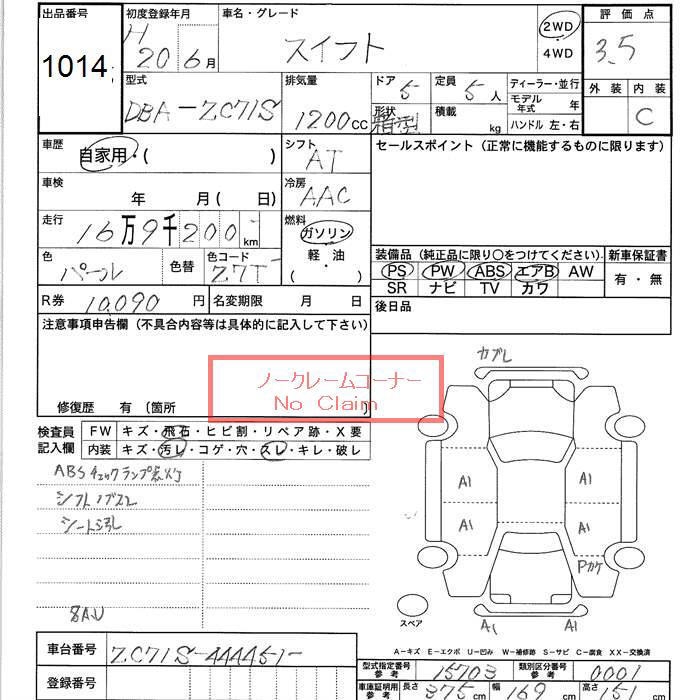 出品番号
1014
初度登録年月
H 20 6月
車名・グレード
スイフト
2WD
4WD
評価点
3.5
外装 内装
C
型式
DBA-ZC71S
排気量
1200cc
ドア
5
定員
5人
形状
箱型
積載
kg
ディーラー・並行
モデル年式 年
ハンドル 左・右
車歴
自家用・( )
シフト
AT
セールスポイント（正常に機能するものに限ります）
車検
年 月( 日)
冷房
AAC
走行
16万9千200km
燃料
ガソリン
軽・油
( ・ )
色
パール
色替
色コード
Z7T
装備品（純正品に限り○をつけてください）
PS PW ABS エアB AW
SR ナビ TV カワ
新車保証書
有・無
R券
10,090円
名変期限 月 日
後日品
注意事項申告欄（不具合内容等は具体的に記入して下さい）
ノークレームコーナー
No Claim
修復歴 有（箇所
検査員記入欄
FW キズ・飛石・ヒビ割・リペア跡・X要
内装 キズ・汚レ・コゲ・穴・スレ・キレ・破レ
ABSチェックランプ点灯
シフトノブスレ
シート汚れ
カブレ
A1 A1
A1 A1
Pカケ
スペア
A1 A1
A-キズ E-エクボ U-凹み W-補修跡 S-サビ C-腐食 XX-交換済
車台番号
ZC71S-444451-
登録番号
型式指定番号参考
15703
類別区分番号参考
0001
車庫証明用参考
長さ 375cm
幅 169cm
高さ 151cm